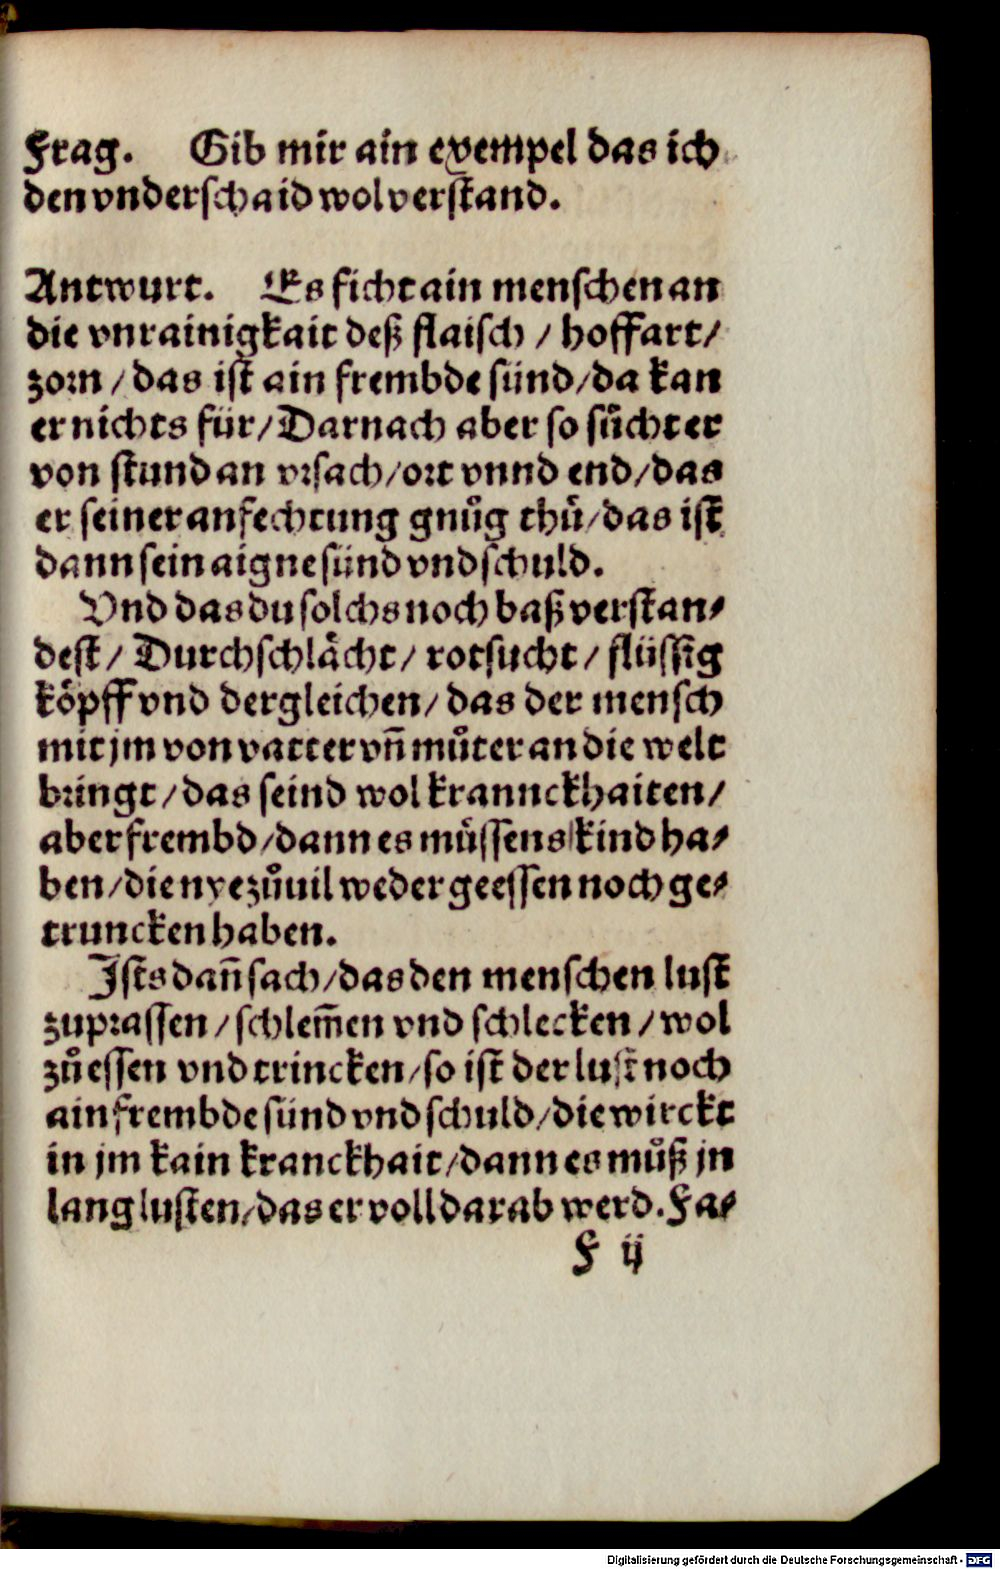 Frag. Gib mir ain exempel das ich
den vnderschaid wol verstand.
Antwurt. Es ficht ain menschen an
die vnrainigkait deß flaisch / hoffart /
zorn / das ist ain frembde sünd / da kan
er nichts für / Darnach aber so sücht er
von stund an vrsach / ort vnnd end / das
er seiner anfechtung gnůg thů / das ist
dann sein aigne sünd vnd schuld.
Vnd das du solchs noch baß verstan⸗
dest / Durchschlächt / rotsucht / flüssig
köpff vnd dergleichen / das der mensch
mit jm von vatter vn̄ můter an die welt
bringt / das seind wol krannckhaiten /
aber frembd / dann es müssens kind ha⸗
ben / die nye zůuil weder geessen noch ge⸗
truncken haben.
Ists dan̄ sach / das den menschen lust
zuprassen / schlem̄en vnd schlecken / wol
zů essen vnd trincken / so ist der lust noch
ain frembde sünd vnd schuld / die wirckt
in jm kain kranckhait / dann es můß jn
lang lusten / das er voll darab werd. Fa⸗
F ij
Digitalisierung gefördert durch die Deutsche Forschungsgemeinschaft - DFG